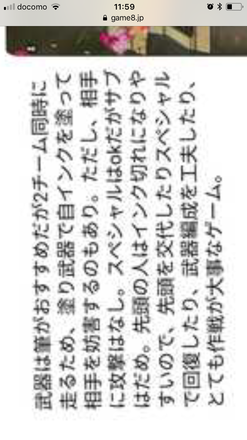 docomo 11:59
game8.jp
武器は筆がおすすめだが2チーム同時に
走るため、塗り武器で自インクを塗って
相手を妨害するのもあり。ただし、相手
に攻撃はなし。スペシャルはokだがサブ
はだめ。先頭の人はインク切れになりや
すいので、先頭を交代したりスペシャル
で回復したり、武器編成を工夫したり、
とても作戦が大事なゲーム。